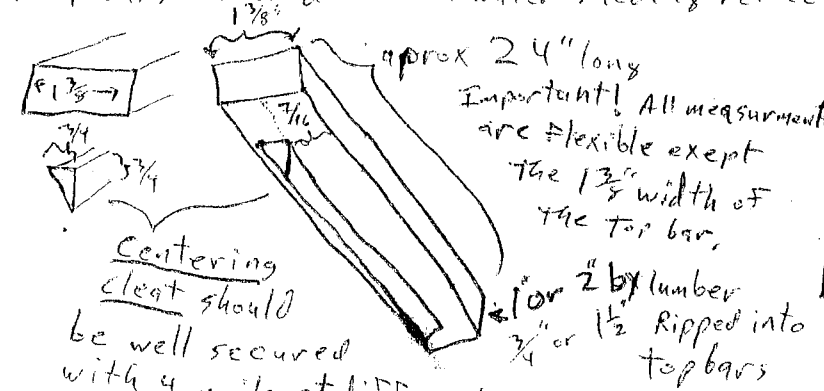 1 3/8"
aprox 24" long
←1 3/8→
Important! All measurment
are Flexible exept
the 1 3/8" width of
the top bar.
7/16
3/4
3/4
Centering
cleat should
be well secured
with 4
1" or 2" by lumber
3/4" or 1 1/2" Ripped into
top bars